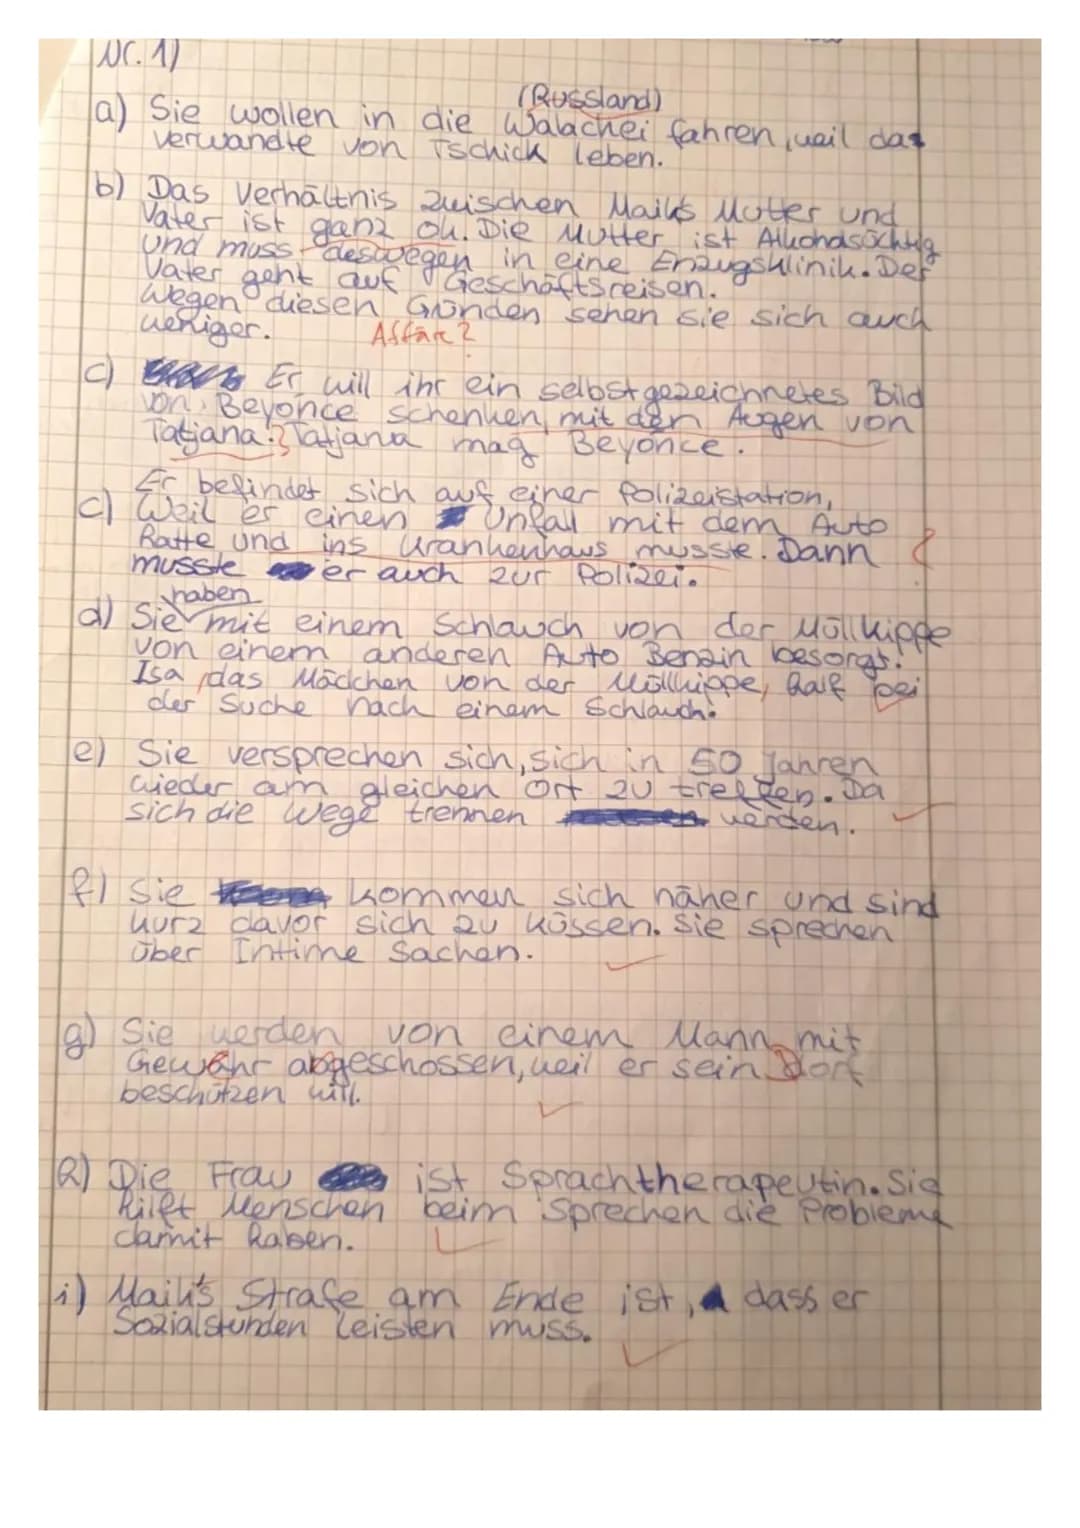 Nr. 1)
(Russland)
a) Sie wollen in die Walachei fahren, weil da
verwandte von Tschick leben.
b) Das Verhältnis zwischen Maiks Mutter und
Vater ist ganz ok. Die Mutter ist Alkoholsüchtig
und muss deswegen in eine Enzugsklinik. Der
Vater geht auf Geschäftsreisen.
Wegen diesen Gründen sehen sie sich auch
weniger. Affäre?
c) Er will ihr ein selbstgezeichnetes Bild
von Beyonce schenken, mit den Augen von
Tatjana. Tatjana mag Beyonce.
Er befindet sich auf einer Polizeistation,
c) Weil er einen Unfall mit dem Auto
hatte und ins Krankenhaus musste. Dann
musste er auch zur Polizei.
haben
d) Sie mit einem Schlauch von der Müllkippe
von einem anderen Auto Benzin besorgt.
Isa, das Mädchen von der Müllkippe, half bei
der Suche nach einem Schlauch.
e) Sie versprechen sich, sich in 50 Jahren
wieder am gleichen Ort zu treffen. Da
sich die Wege trennen werden.
f) Sie kommen sich näher und sind
kurz davor sich zu küssen. Sie sprechen
über Intime Sachen.
g) Sie werden von einem Mann mit
Gewehr abgeschossen, weil er sein Dorf
beschützen will.
h) Die Frau ist Sprachtherapeutin. Sie
hilft Menschen beim Sprechen die Probleme
damit haben.
i) Maik's Strafe am Ende ist, dass er
Sozialstunden leisten muss.